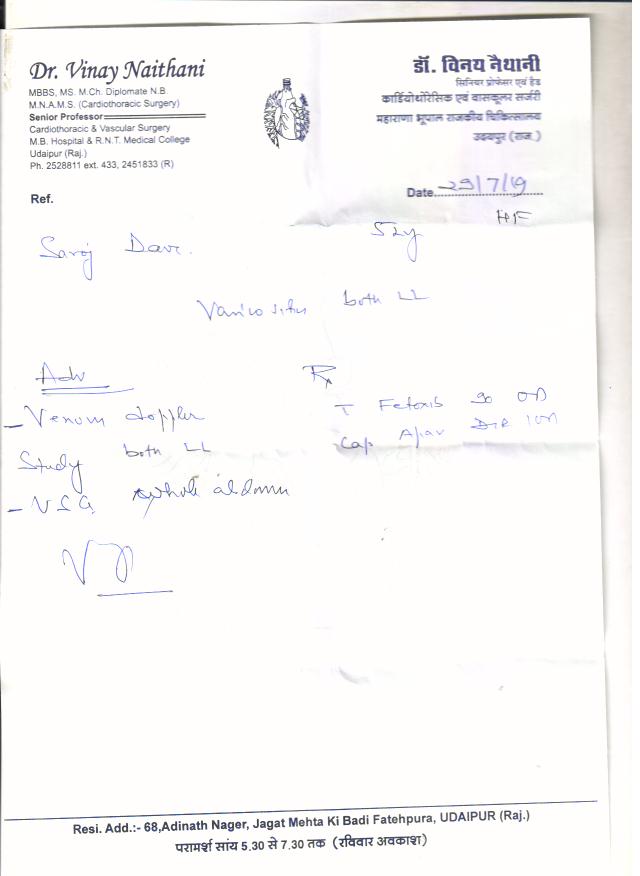 Dr. Vinay Naithani
MBBS, MS. M.Ch. Diplomate N.B.
M.N.A.M.S. (Cardiothoracic Surgery)
Senior Professor
Cardiothoracic & Vascular Surgery
M.B. Hospital & R.N.T. Medical College
Udaipur (Raj.)
Ph. 2528811 ext. 433, 2451833 (R)
डॉ. विनय नैथानी
सिनियर प्रोफेसर एवं हैड
कार्डियोथोरेसिक एवं वासकूलर सर्जरी
महाराणा भूपाल राजकीय चिकित्सालय
उदयपुर (राज.)
Date 29/7/19
Ref.
HF
Saroj Dave. 52y
both LL
Adv
- Venous doppler
Study both LL
- USG whole abdomen
Rx
T OD
Cap
Resi. Add.:- 68,Adinath Nager, Jagat Mehta Ki Badi Fatehpura, UDAIPUR (Raj.)
परामर्श सांय 5.30 से 7.30 तक (रविवार अवकाश)